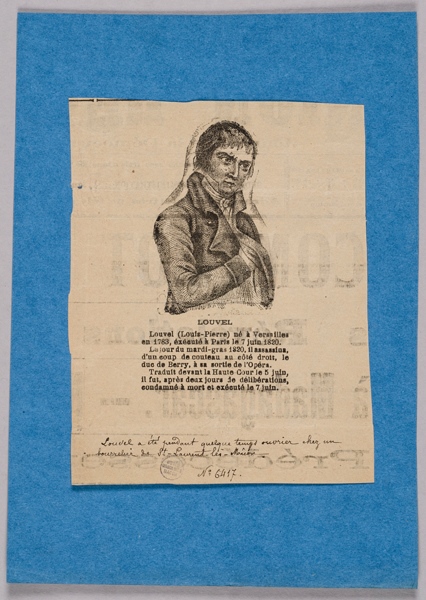 LOUVEL
Louvel (Louis-Pierre) né à Versailles
en 1783, exécuté à Paris le 7 juin 1820.
Le jour du mardi-gras 1820, il assassina,
d'un coup de couteau au côté droit, le
duc de Berry, à sa sortie de l'Opéra.
Traduit devant la Haute Cour le 5 juin,
il fut, après deux jours de délibérations,
condamné à mort et exécuté le 7 juin.
Louvel a été pendant quelque temps ouvrier chez un
bourrelier de St-Laurent-lès-Mâcon.
N° 6417.